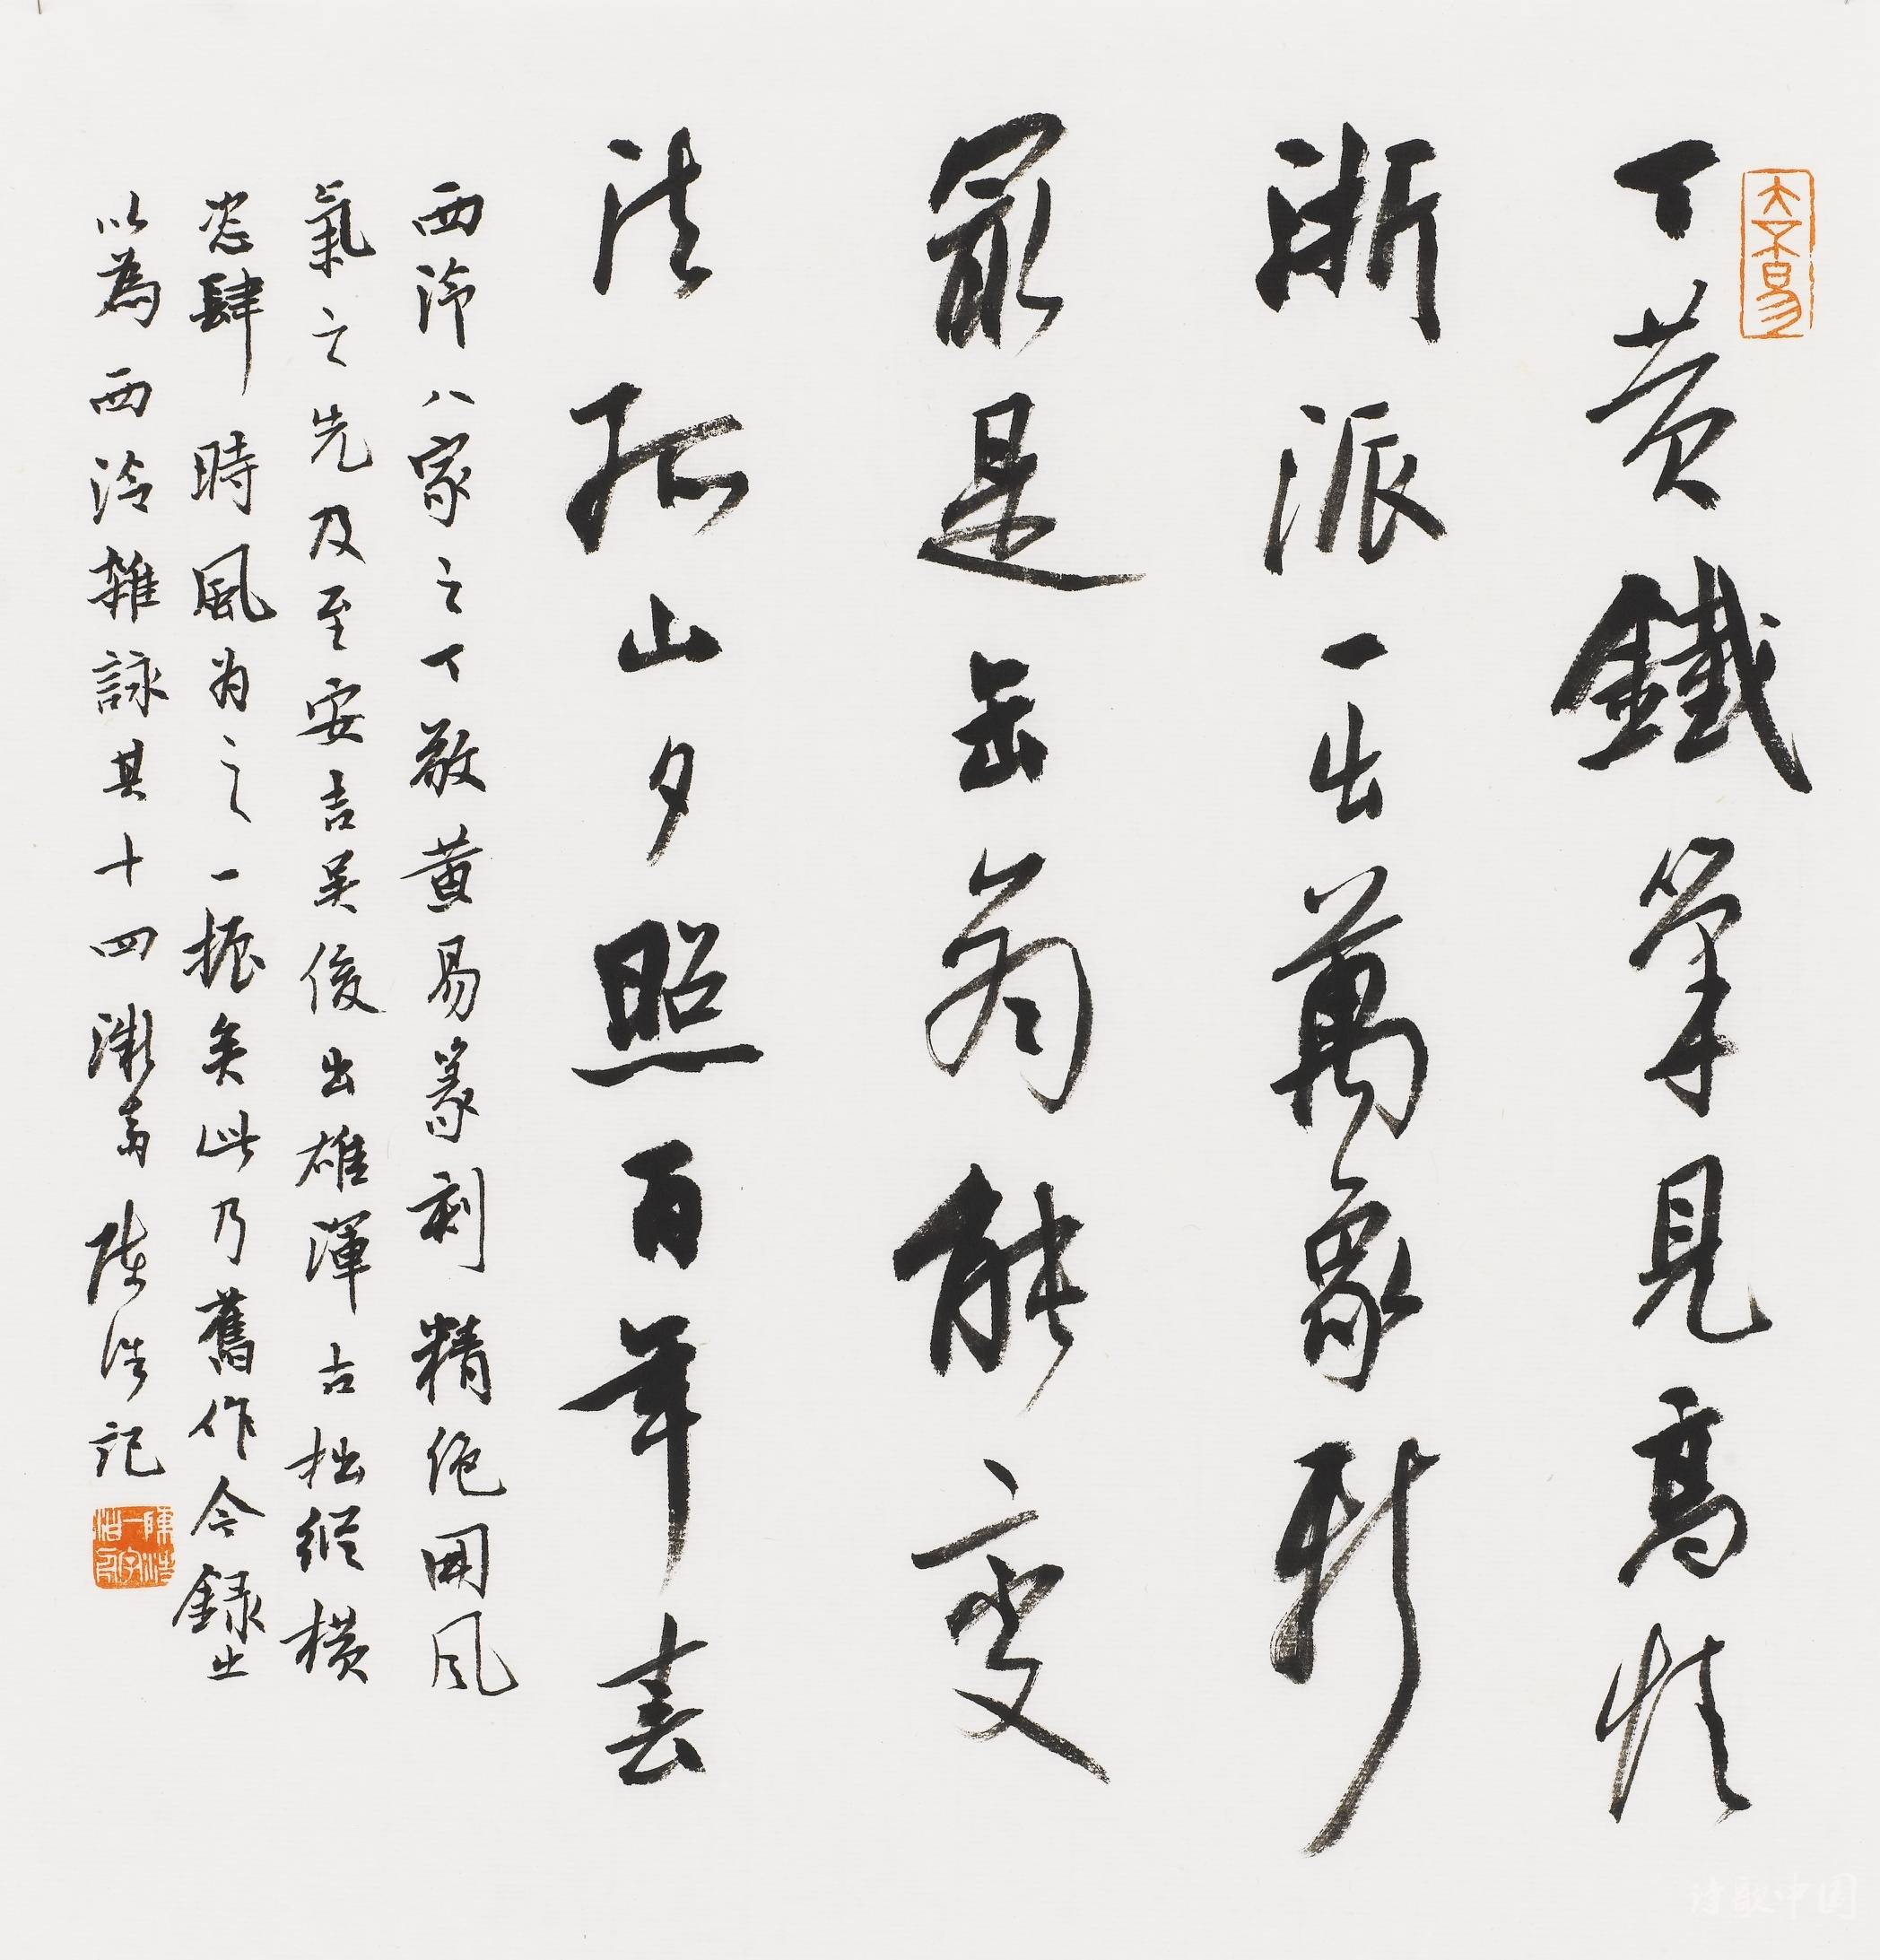 丁黄鐵筆見高情
浙派一出萬象新
最是缶翁能變
法孤山夕照百年春
西泠八家之丁敬黄易篆刻精绝開风
氣之先及至安吉吴俊出雄渾古拙縱横
恣肆時風为之一振矣此乃舊作今録出
以為西泠雜詠其十四 陳浩記
诗歌中国